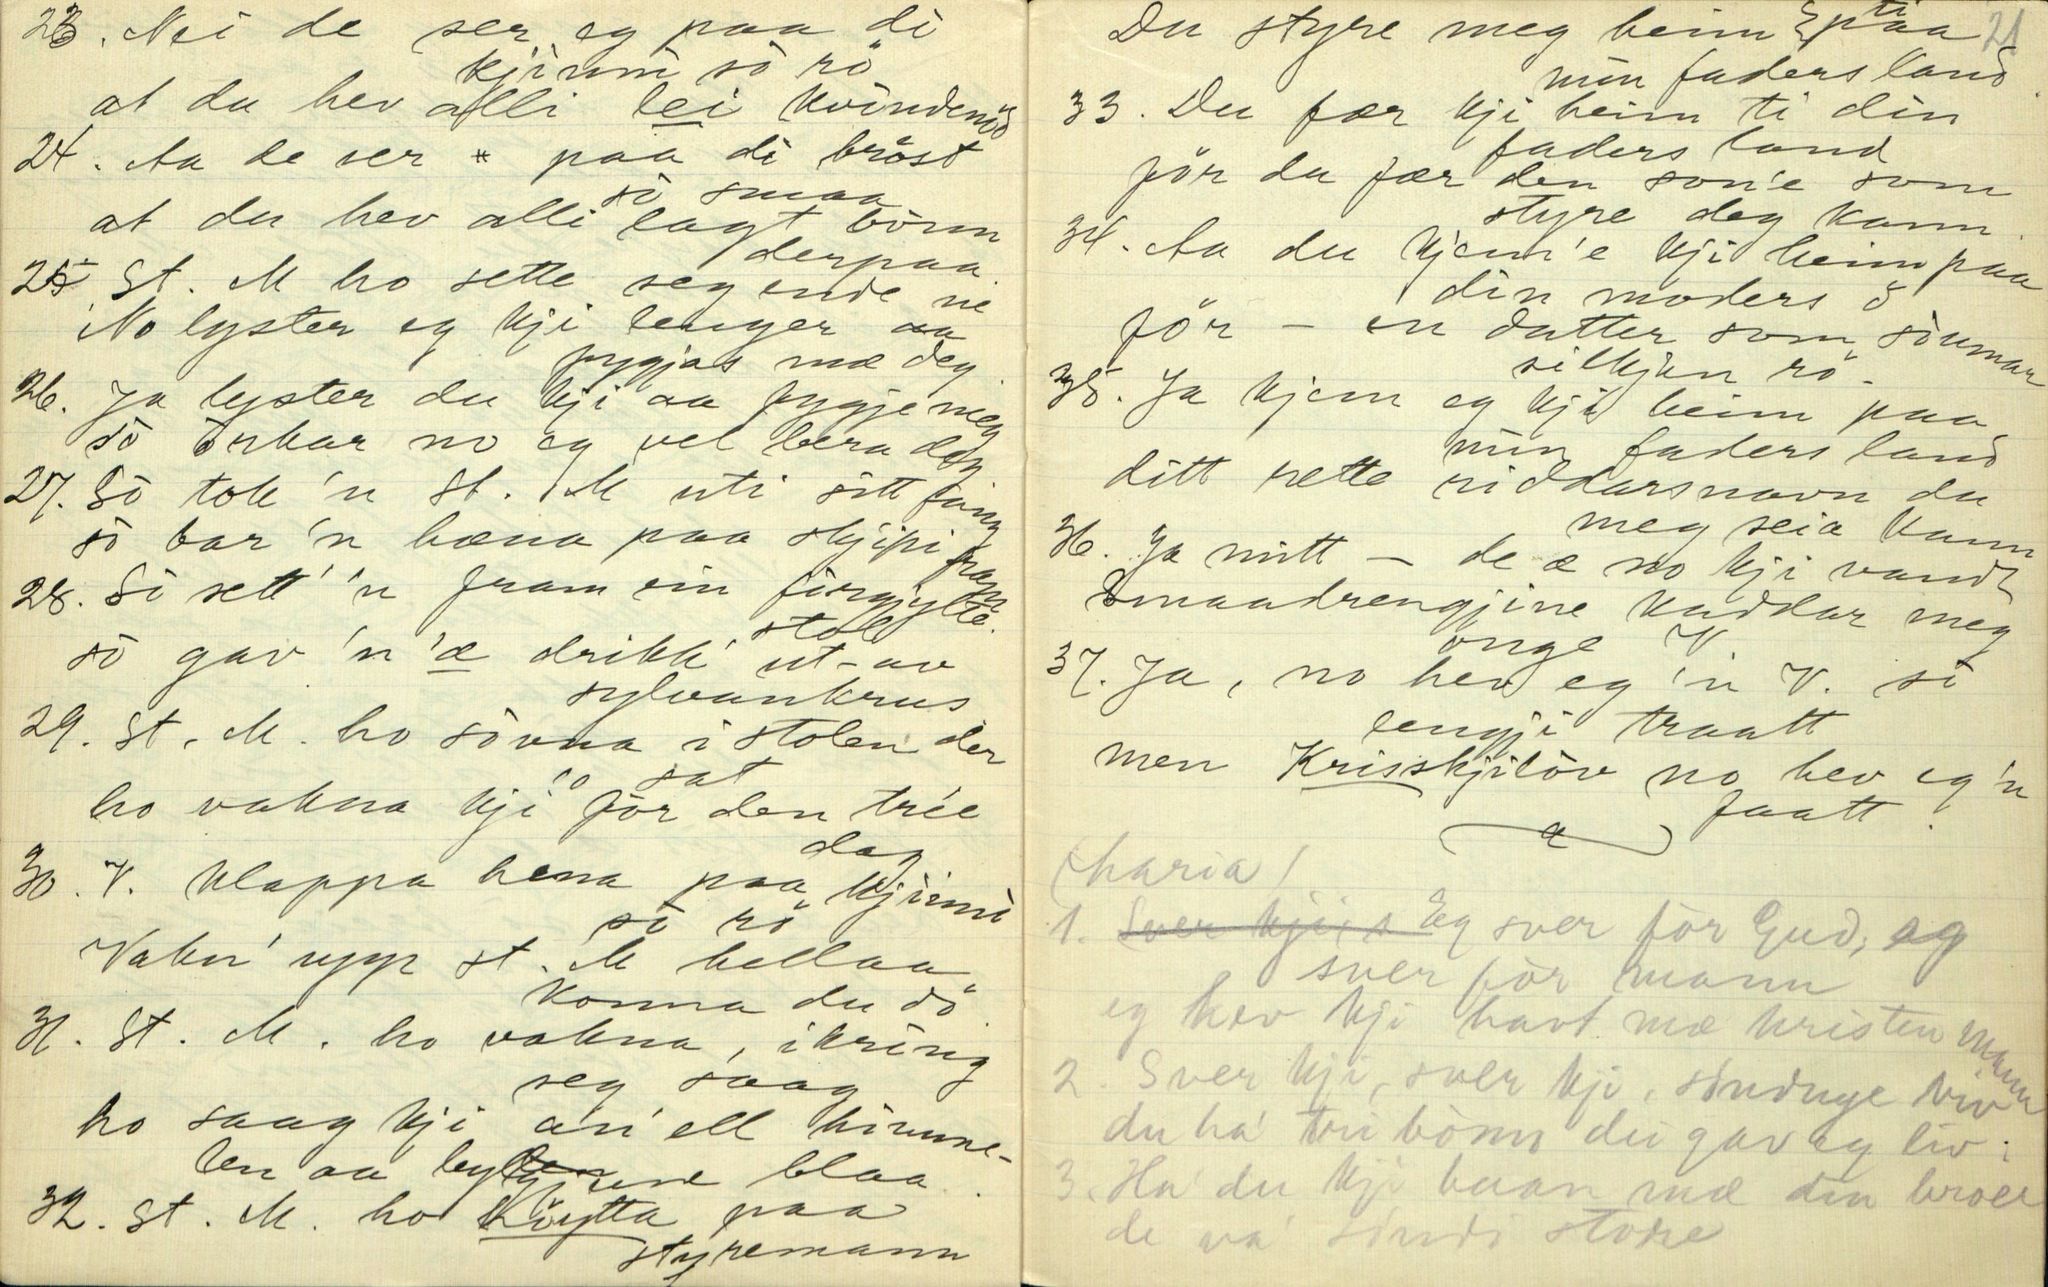 23. Nei de ser eg paa di
kjinni so rö
at du hev alli lei kvindenöd
24. Aa de ser * paa di bröst
so smaa
at du hev alli lagt börnn
derpaa
25 St. M ho sette seg ende ne
No lyster eg kji lenger aa
fygjas mæ deg
26. Ja lyster du kji aa fygje meg
so orkar no eg vel bera deg
27. So tok 'n St. M uti sitt fang
so bar 'n hæna paa skjipi fram
28. So sett' 'n fram ein förgylte
stol
so gav 'n 'æ drikk' ut-av
sylvankrus
29. St. M. ho sovna i stolen der
ho sat
ho vakna kji för den trée
dag
30. V. klappa hena paa kjinni
so rö
Vakn' upp st. M hellaa
konna du dö.
31. St. M. ho vakna, ikring
seg saag
ho saag kji an' ell himme-
len aa bylgjune blaa.
32. St. M. ho köytta paa
styremann
21
Du styre meg heim ti paa
min faders land.
33. Du fær kji heim ti din
faders land
för du fær den son'e som
styre deg kann.
34. Aa du kjem'e kji heim paa
din moders ö
för – en datter som soumar
silkjen rö.
35. Ja kjem eg kji heim paa
min faders land
ditt rette riddarsnavn du
meg seia kann
36. Ja mitt – de æ no kji vandt
Smaadrengjine kaddar meg
onge V
37. Ja, no hev eg 'n V. so
lengji traatt
men Krisskjilöv no hev eg 'n
faatt.
(haria)
1. Sver kji, s Eg sver för Gud, eg
sver för mann
eg hev kji havt mæ kristen mann
2. Sver kji, sver kji, sinduge viv
du ha' tri börnn du gav eg liv:
3. Ha' du kji baan mæ din broer
de va' sindi store